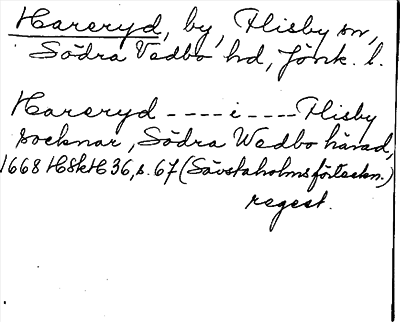 Hareryd, by, Flisby sn,
Södra Vedbo hd, Jönk. l.
Hareryd ----i---- Flisby
socknar, Södra Wedbo härad,
1668 HSkH 36, s. 67 (Sävstaholmsförteckn.)
regest.